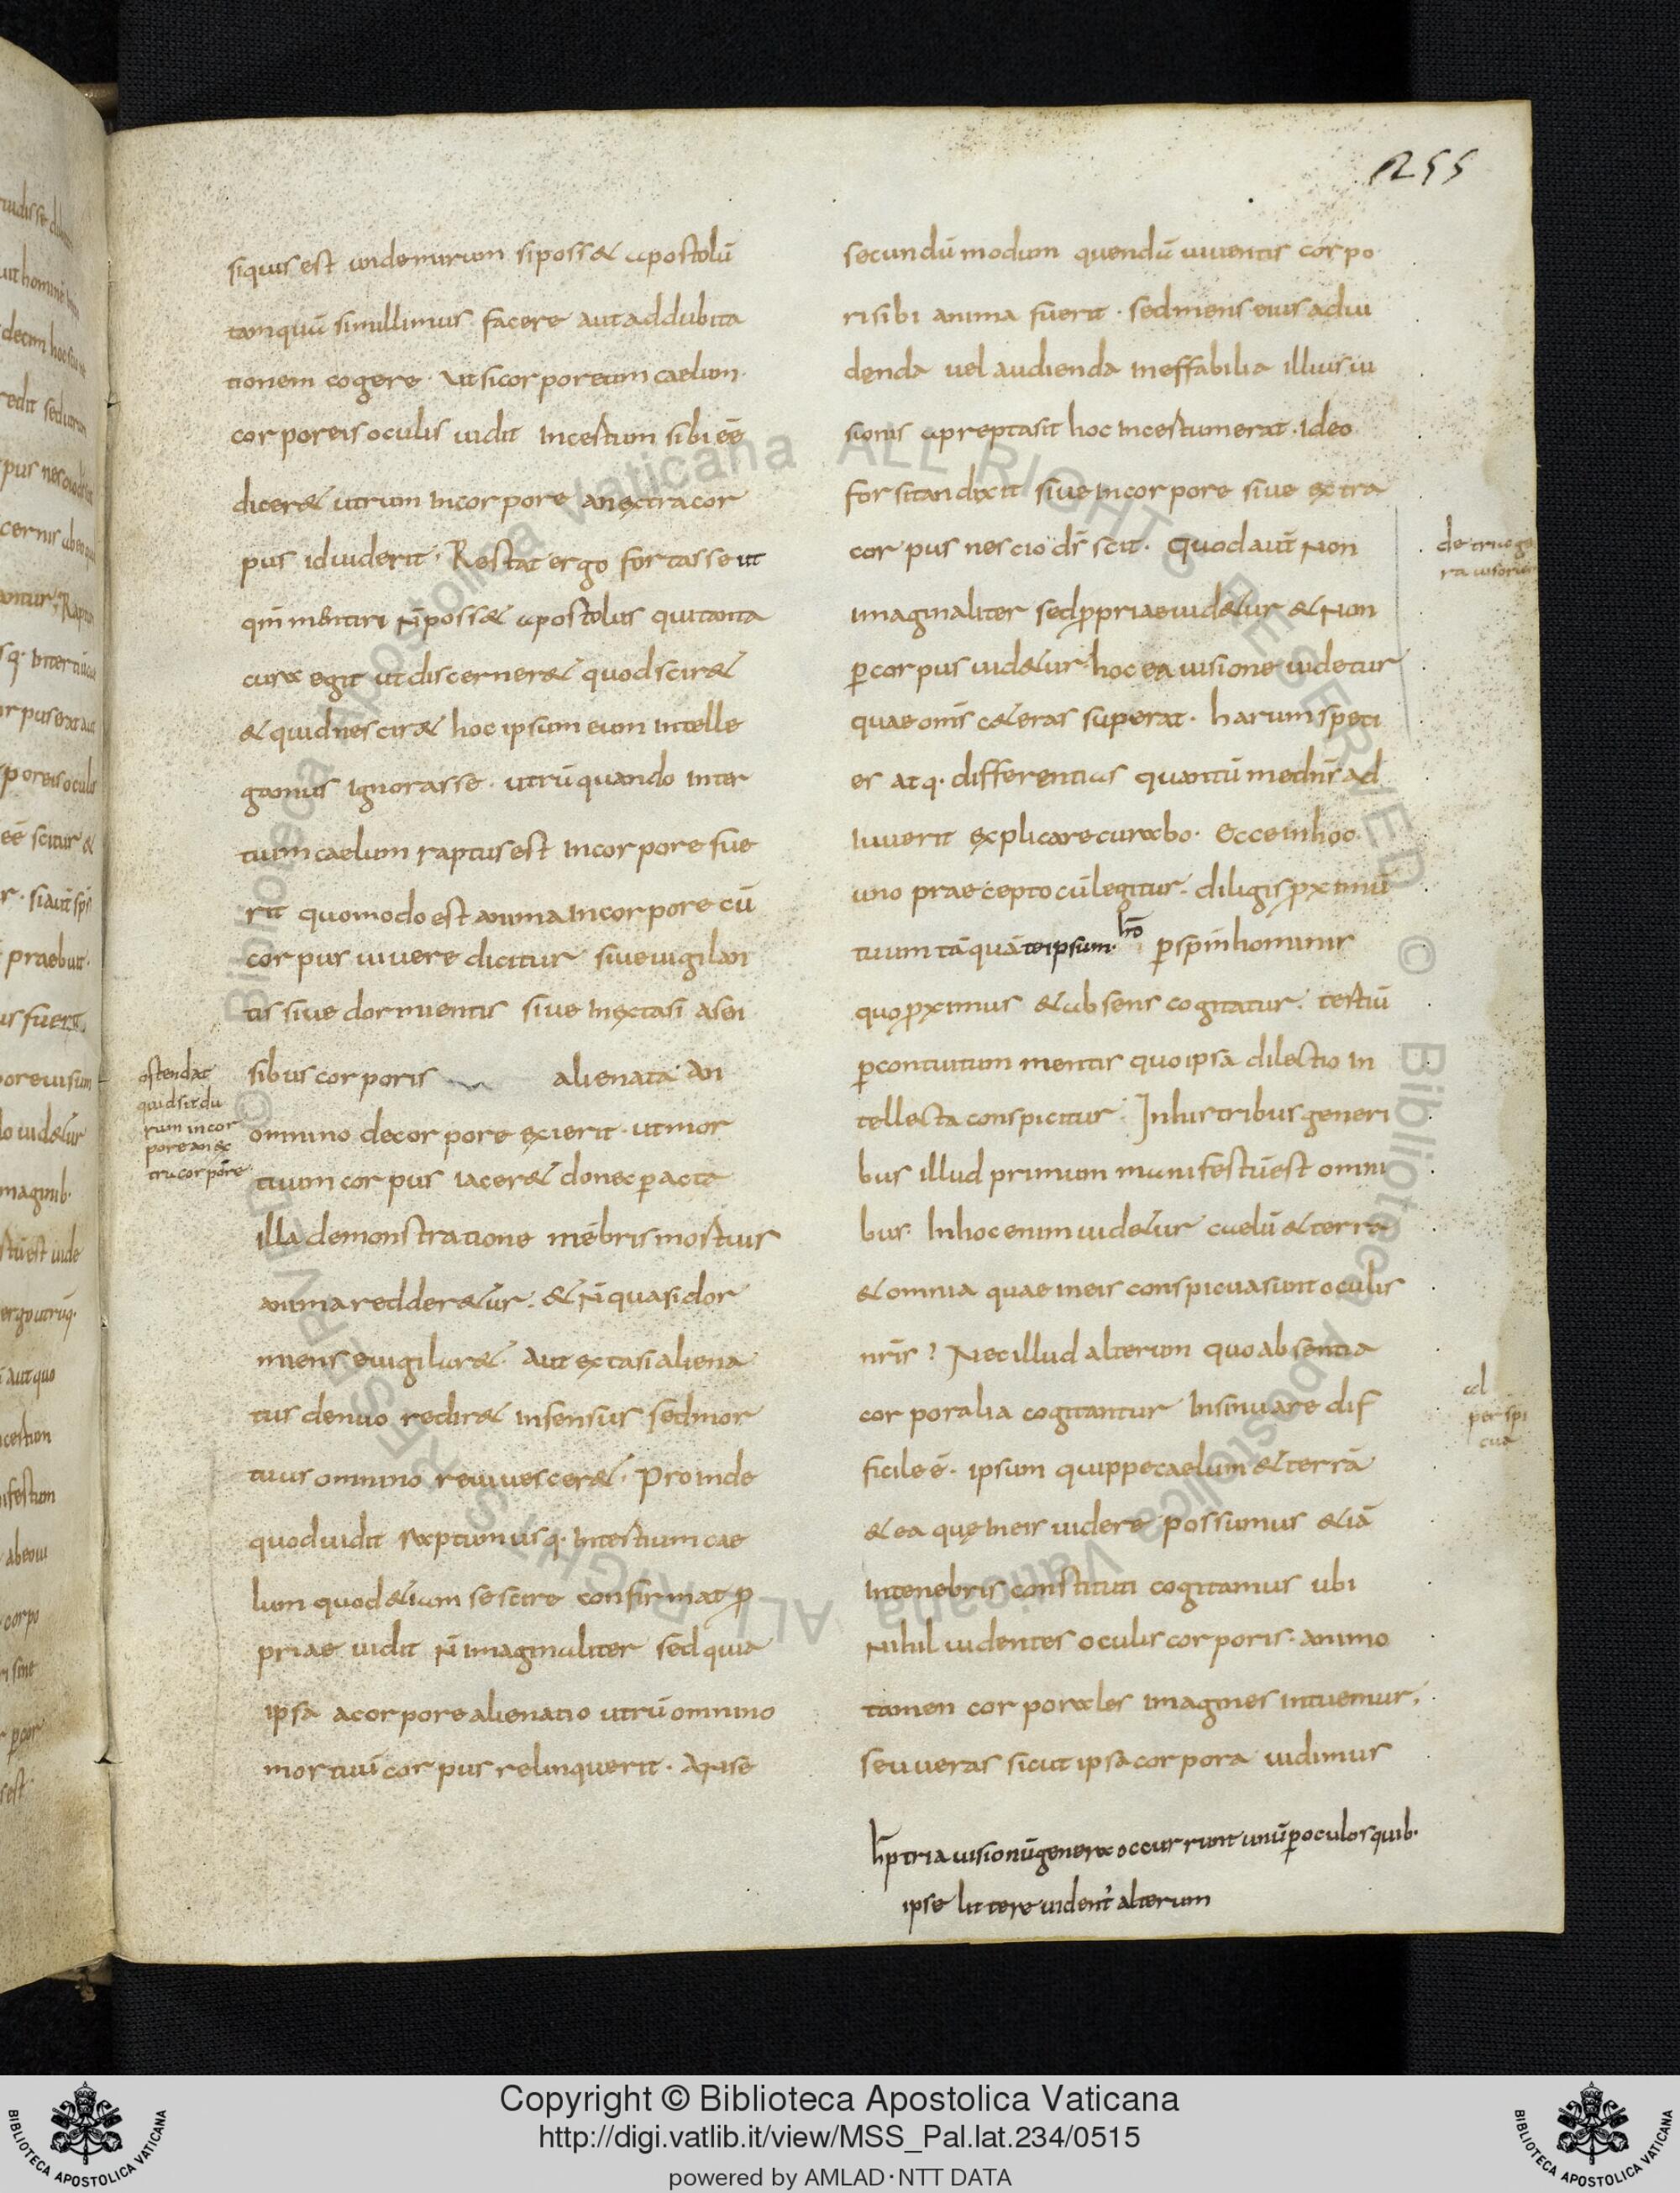 255
siquis est uidemurum siposs& apostolū
tamquā simillimus facere aut addubita
tionem cogere. ut si corporeum caelum
corporeis oculis uidit incertum sibi eē
dicer& utrum incorpore an extra cor
pus id uiderit. Restat ergo fortasse ut
qm mentiri ñ poss& apostolus qui tanta
cura egit ut discerner& quod scir&
& quid nescir& hoc ipsum eum intelle
gamus ignorasse. utrū quando inter
tium caelum raptus est incorpore fue
rit quomodo est anima incorpore cū
corpus uiuere dicitur siue uigilan
tis siue dormientis siue in extasi asen
sibus corporis alienata an
omnino de corpore exierit. ut mor
tuum corpus iacer& donec peracta
illa demonstratione mēbris mostuis
anima redder&ur. & ñ quasi dor
miens euigilar&. aut extasi aliena
tus denuo redir& insensus sed mor
tuus omnino reuiuescer&. Proinde
quod uidit raptum usq. intertium cae
lum quod &iam se scire confirmat p
priae uidit ñ imaginaliter sed quia
ipsa acorpore alienatio utrū omnino
mortuū corpus reliquerit. an se
ostendat
quid sit du
rum in cor
pore an ex
tra corpore
secundū modum quendū uiuentis corpo
ris ibi anima fuerit. sed mens eius adui
denda uel audienda ineffabilia illius ui
sionis apreptasit hoc incertum erat. Ideo
forsitan dixit siue incorpore siue extra
corpus nescio ds scit. Quod aut Non
imaginaliter sed ppriae uid&ur & Non
p corpus uid&ur. hoc ea uisione uidetur
quae omīs c&eras superat. harum speti
es atq. differentias quantū me dñs ad
iuuerit explicare curabo. Ecce inhoc
uno praecepto cū legitur. diligis pximū
tuum tāquā te ipsum. hō p spm hominis
quo pximus & absens cogitatur. tertiū
p contuitum mentis quo ipsa dilectio in
tellecta conspicitur. In his tribus generi
bus illud primum manifestū est omni
bus. In hoc enim uid&ur caelū & terra
& omnia quae in eis conspicua sunt oculis
nris? Nec illud alterum quo absentia
corporalia cogitantur insinuare dif
ficile ē. ipsum quippe caelum & terrā
& ea quę in eis uidere possumus &iā
intenebris constituti cogitamus ubi
Nihil uidentes oculis corporis. animo
tamen corporales imagines intuemur.
seu ueras sicut ipsa corpora uidimus
de trio ge
ra uisorum
al
perspi
cua
hp tria uisionū genera occurrunt unū p oculos quib.
ipse littere uident alterum
Copyright © Biblioteca Apostolica Vaticana
http://digi.vatlib.it/view/MSS_Pal.lat.234/0515
powered by AMLAD·NTT DATA
BIBLIOTECA APOSTOLICA VATICANA
BIBLIOTECA APOSTOLICA VATICANA
© Biblioteca Apostolica Vaticana ALL RIGHTS RESERVED © Biblioteca Apostolica Vaticana ALL RIGHTS RESERVED